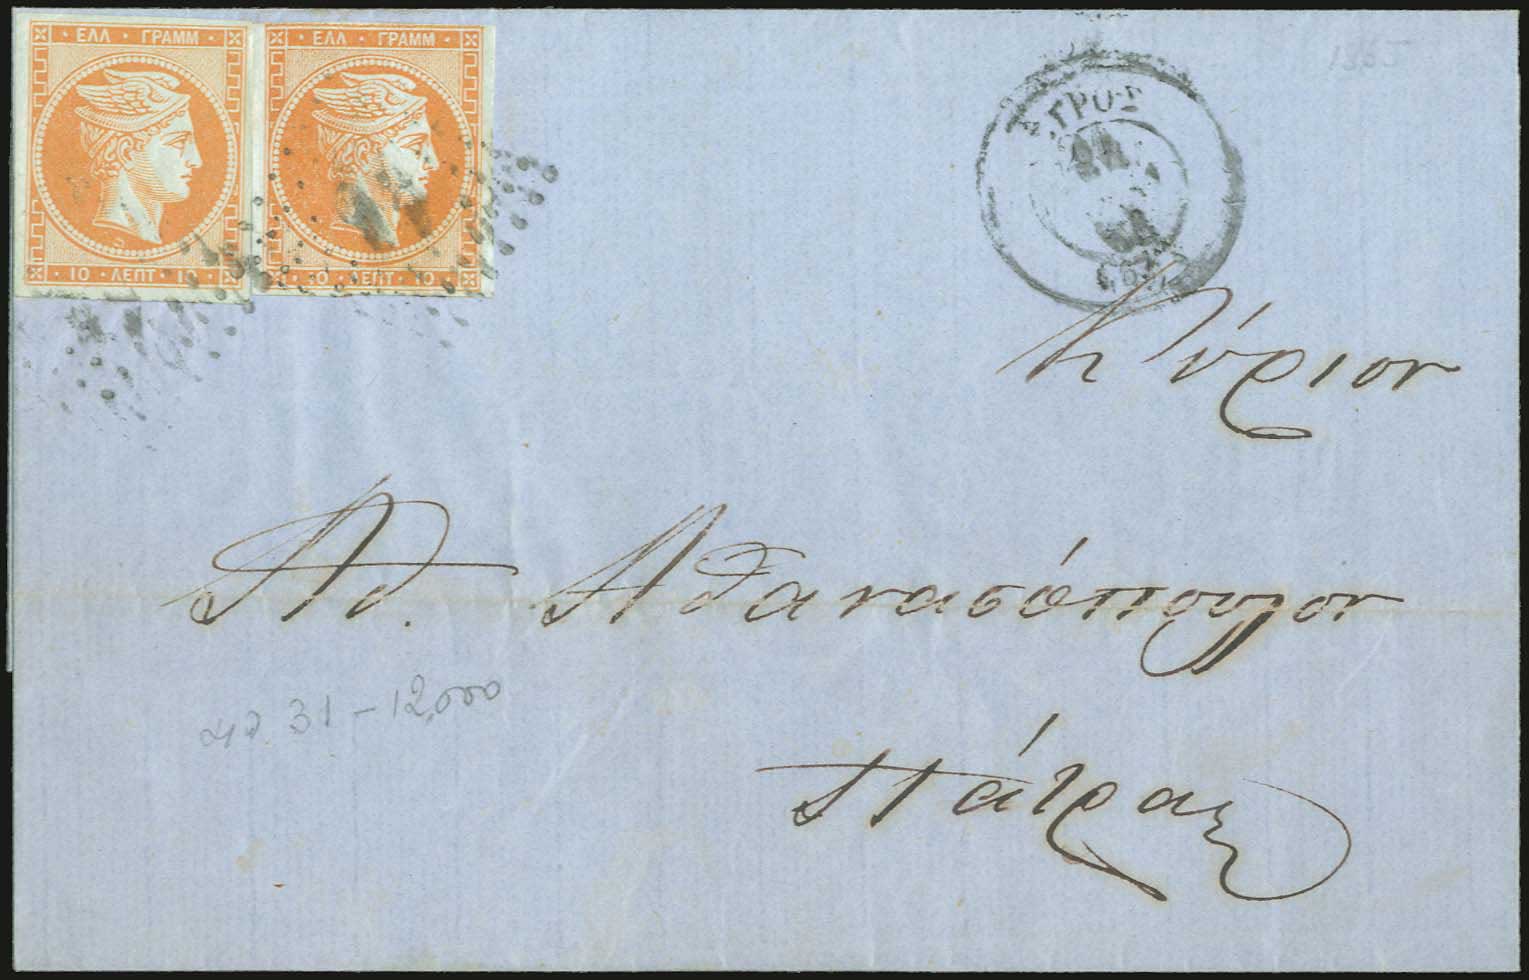 ΕΛΛ · ΓΡΑΜΜ
10 · ΛΕΠΤ · 10
ΕΛΛ · ΓΡΑΜΜ
10 · ΛΕΠΤ · 10
Κύριον
Αθ. Αθανασόπουλον
Πάτρας
31 - 12,000